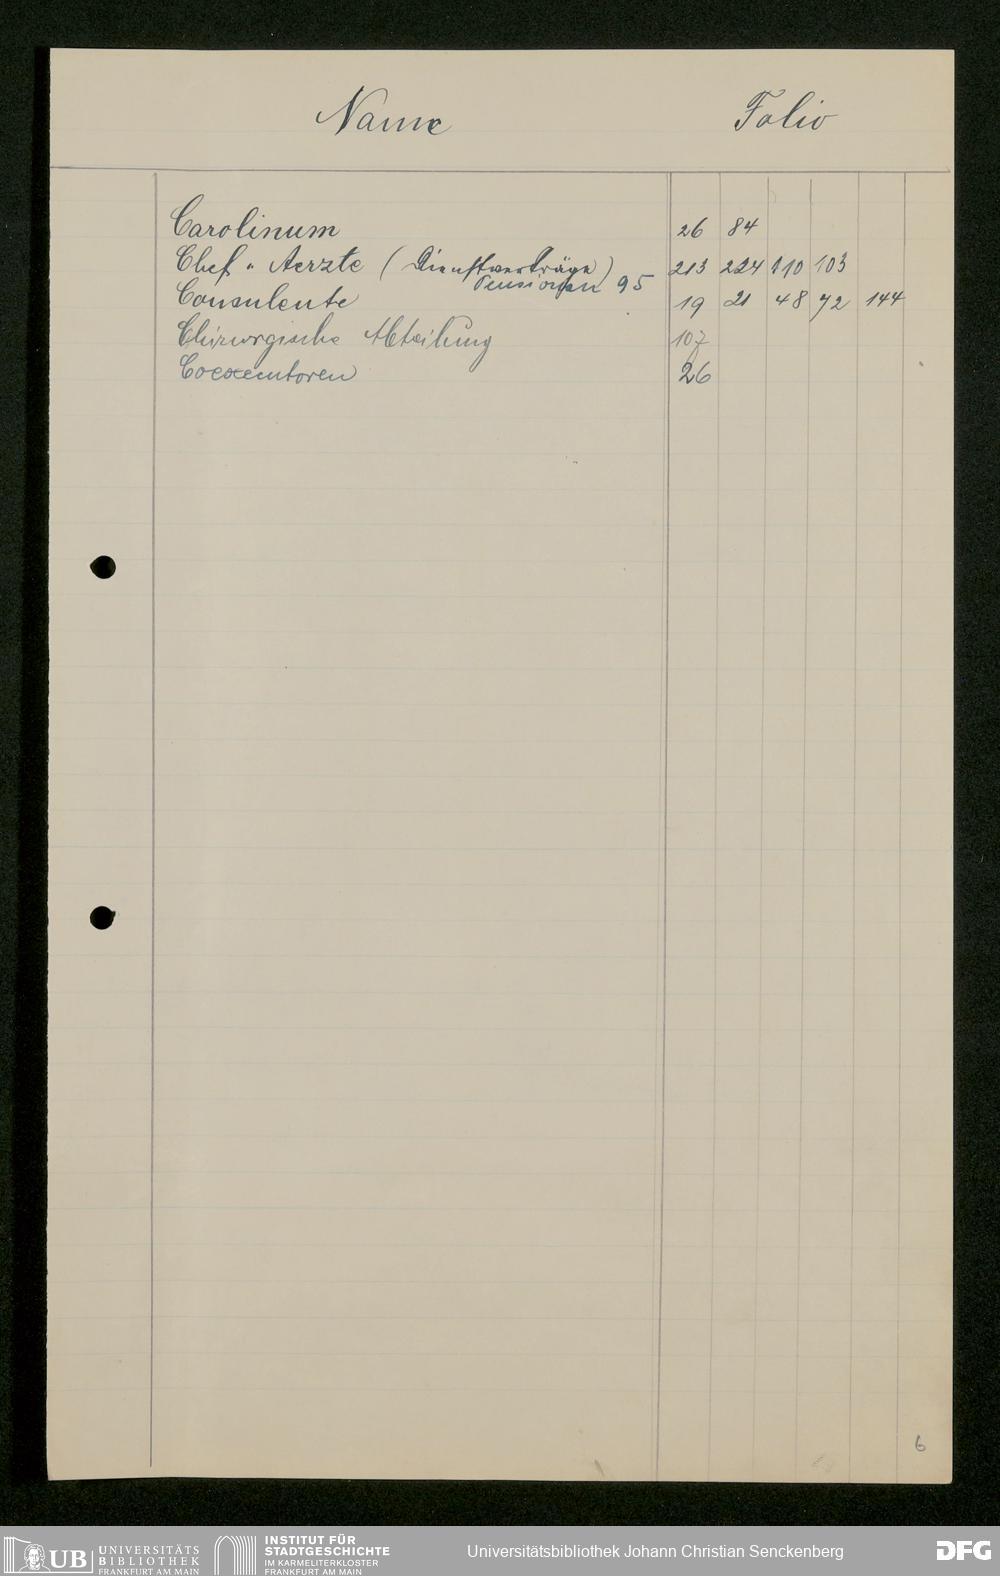 Name Folio
Carolinum 26 84
Chef-Aerzte (Dienstverträge) 213 224 110 103
Pensionen 95
Consulente 19 21 48 72 144
Chirurgische Abteilung 107
Coexecutoren 26
6
UB UNIVERSITÄTS BIBLIOTHEK FRANKFURT AM MAIN
INSTITUT FÜR STADTGESCHICHTE IM KARMELITERKLOSTER FRANKFURT AM MAIN
Universitätsbibliothek Johann Christian Senckenberg
DFG